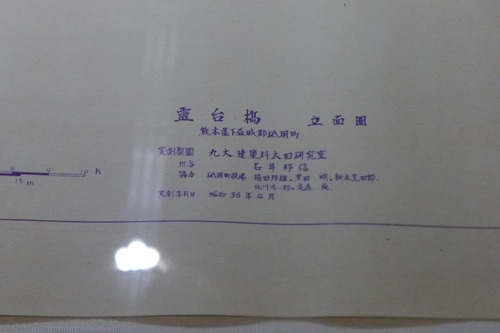 霊台橋 立面圖
熊本県下益城郡砥用町
実測製圖 九大建築科太田研究室
担当 石井邦信
協力 砥用町役場
実測年月日 昭和36年4月
0 10 K
15 m